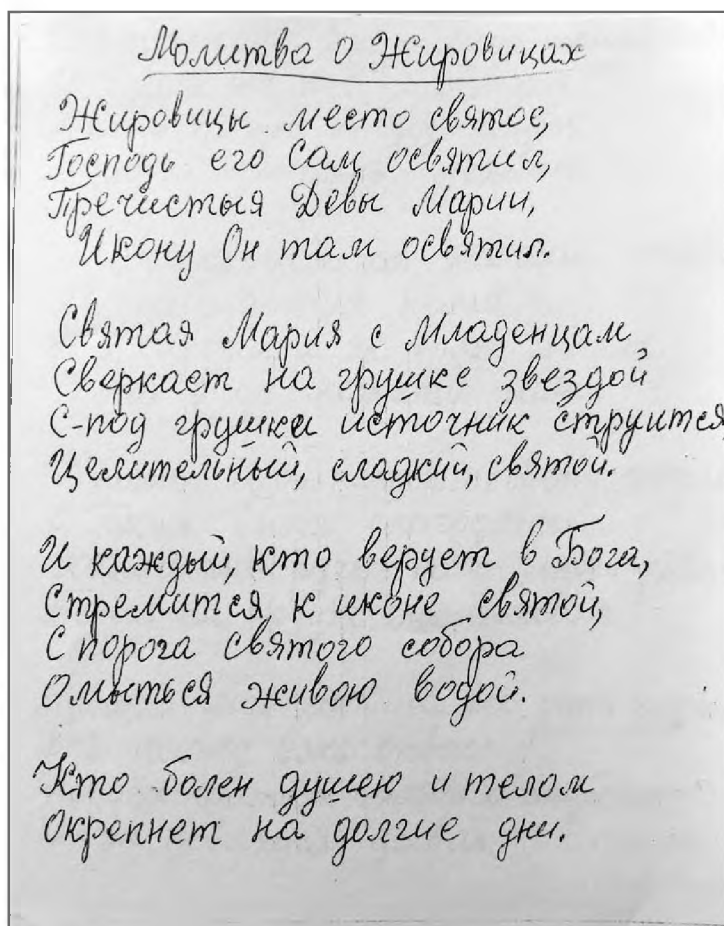 Молитва о Жировицах
Жировицы место святое,
Господь его Сам освятил,
Пречистыя Девы Марии,
Икону Он там освятил.
Святая Мария с Младенцам
Сверкает на грушке звездой
С-под грушки источник струится
Целительный, сладкий, святой.
И каждый, кто верует в Бога,
Стремится к иконе святой,
С порога святого собора
Омыться живою водой.
Кто болен душею и телом
Окрепнет на долгие дни.